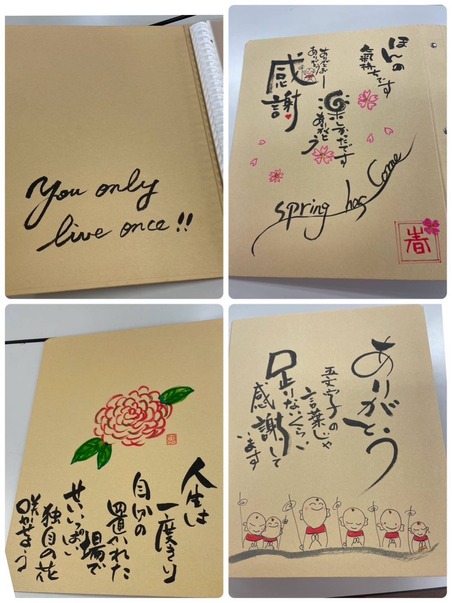 You only
live once!!
ほんの
気持ちです
ありがとう
感謝
楽しかったです
ありがとう
spring has come
春
人生は
一度きり
自分の
置かれた
場で
せいいっぱい
独自の花
咲かせよう
ありがとう
五文字の
言葉じゃ
足りないくらい
感謝して
います